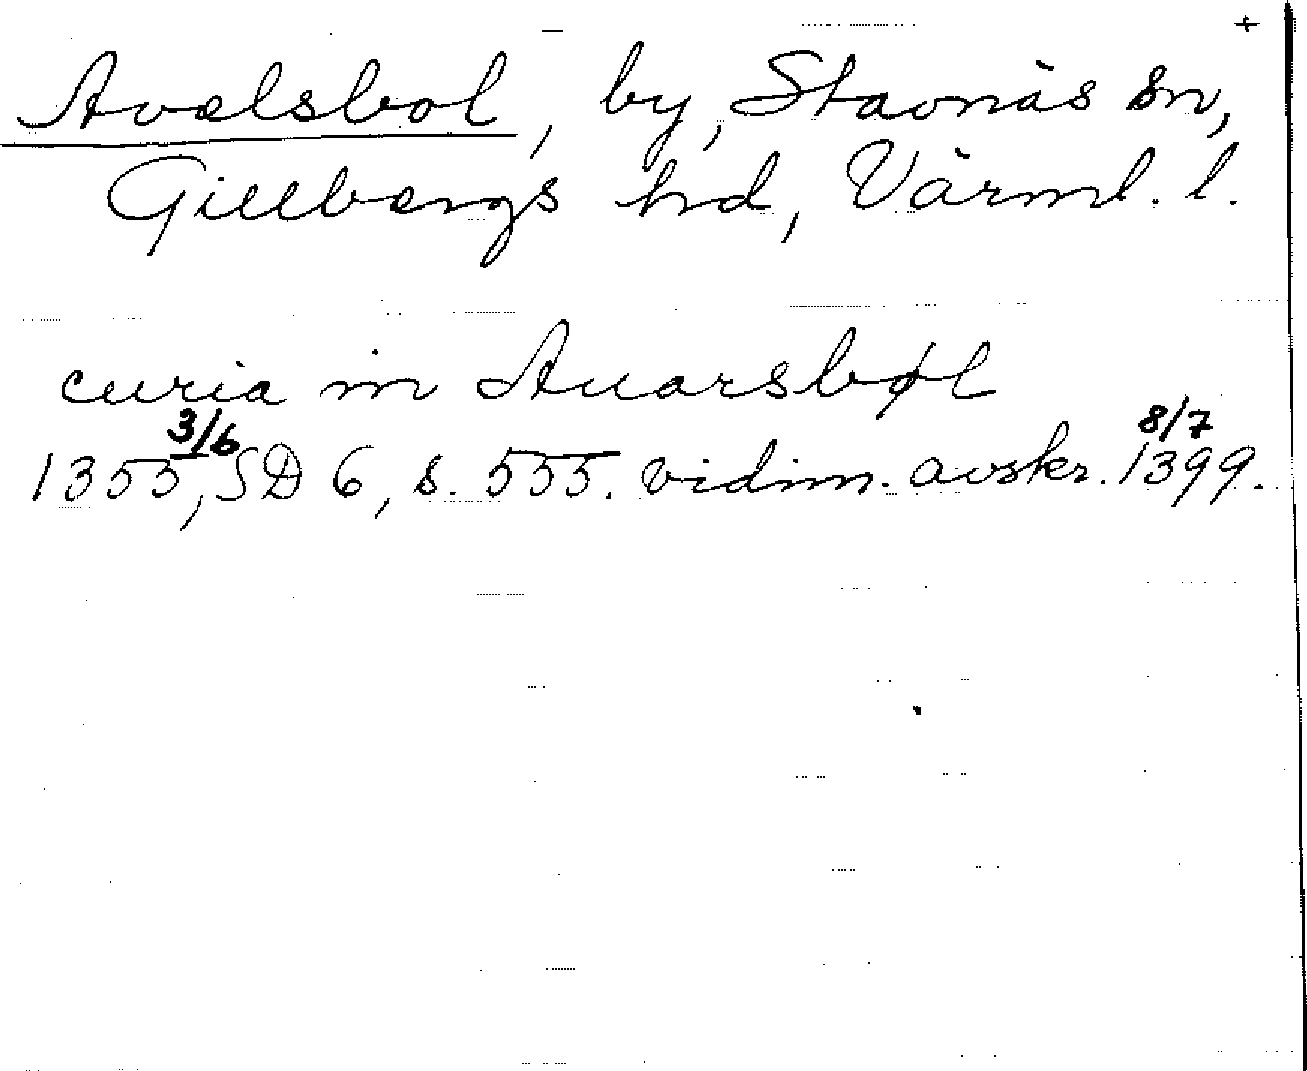 +
Avelsbol, by, Stavnäs sn,
Gillbergs hd, Värml. l.
curia in Auarsbøl
1355 3/6, SD 6, s. 555. vidim. avskr. 8/7 1399.